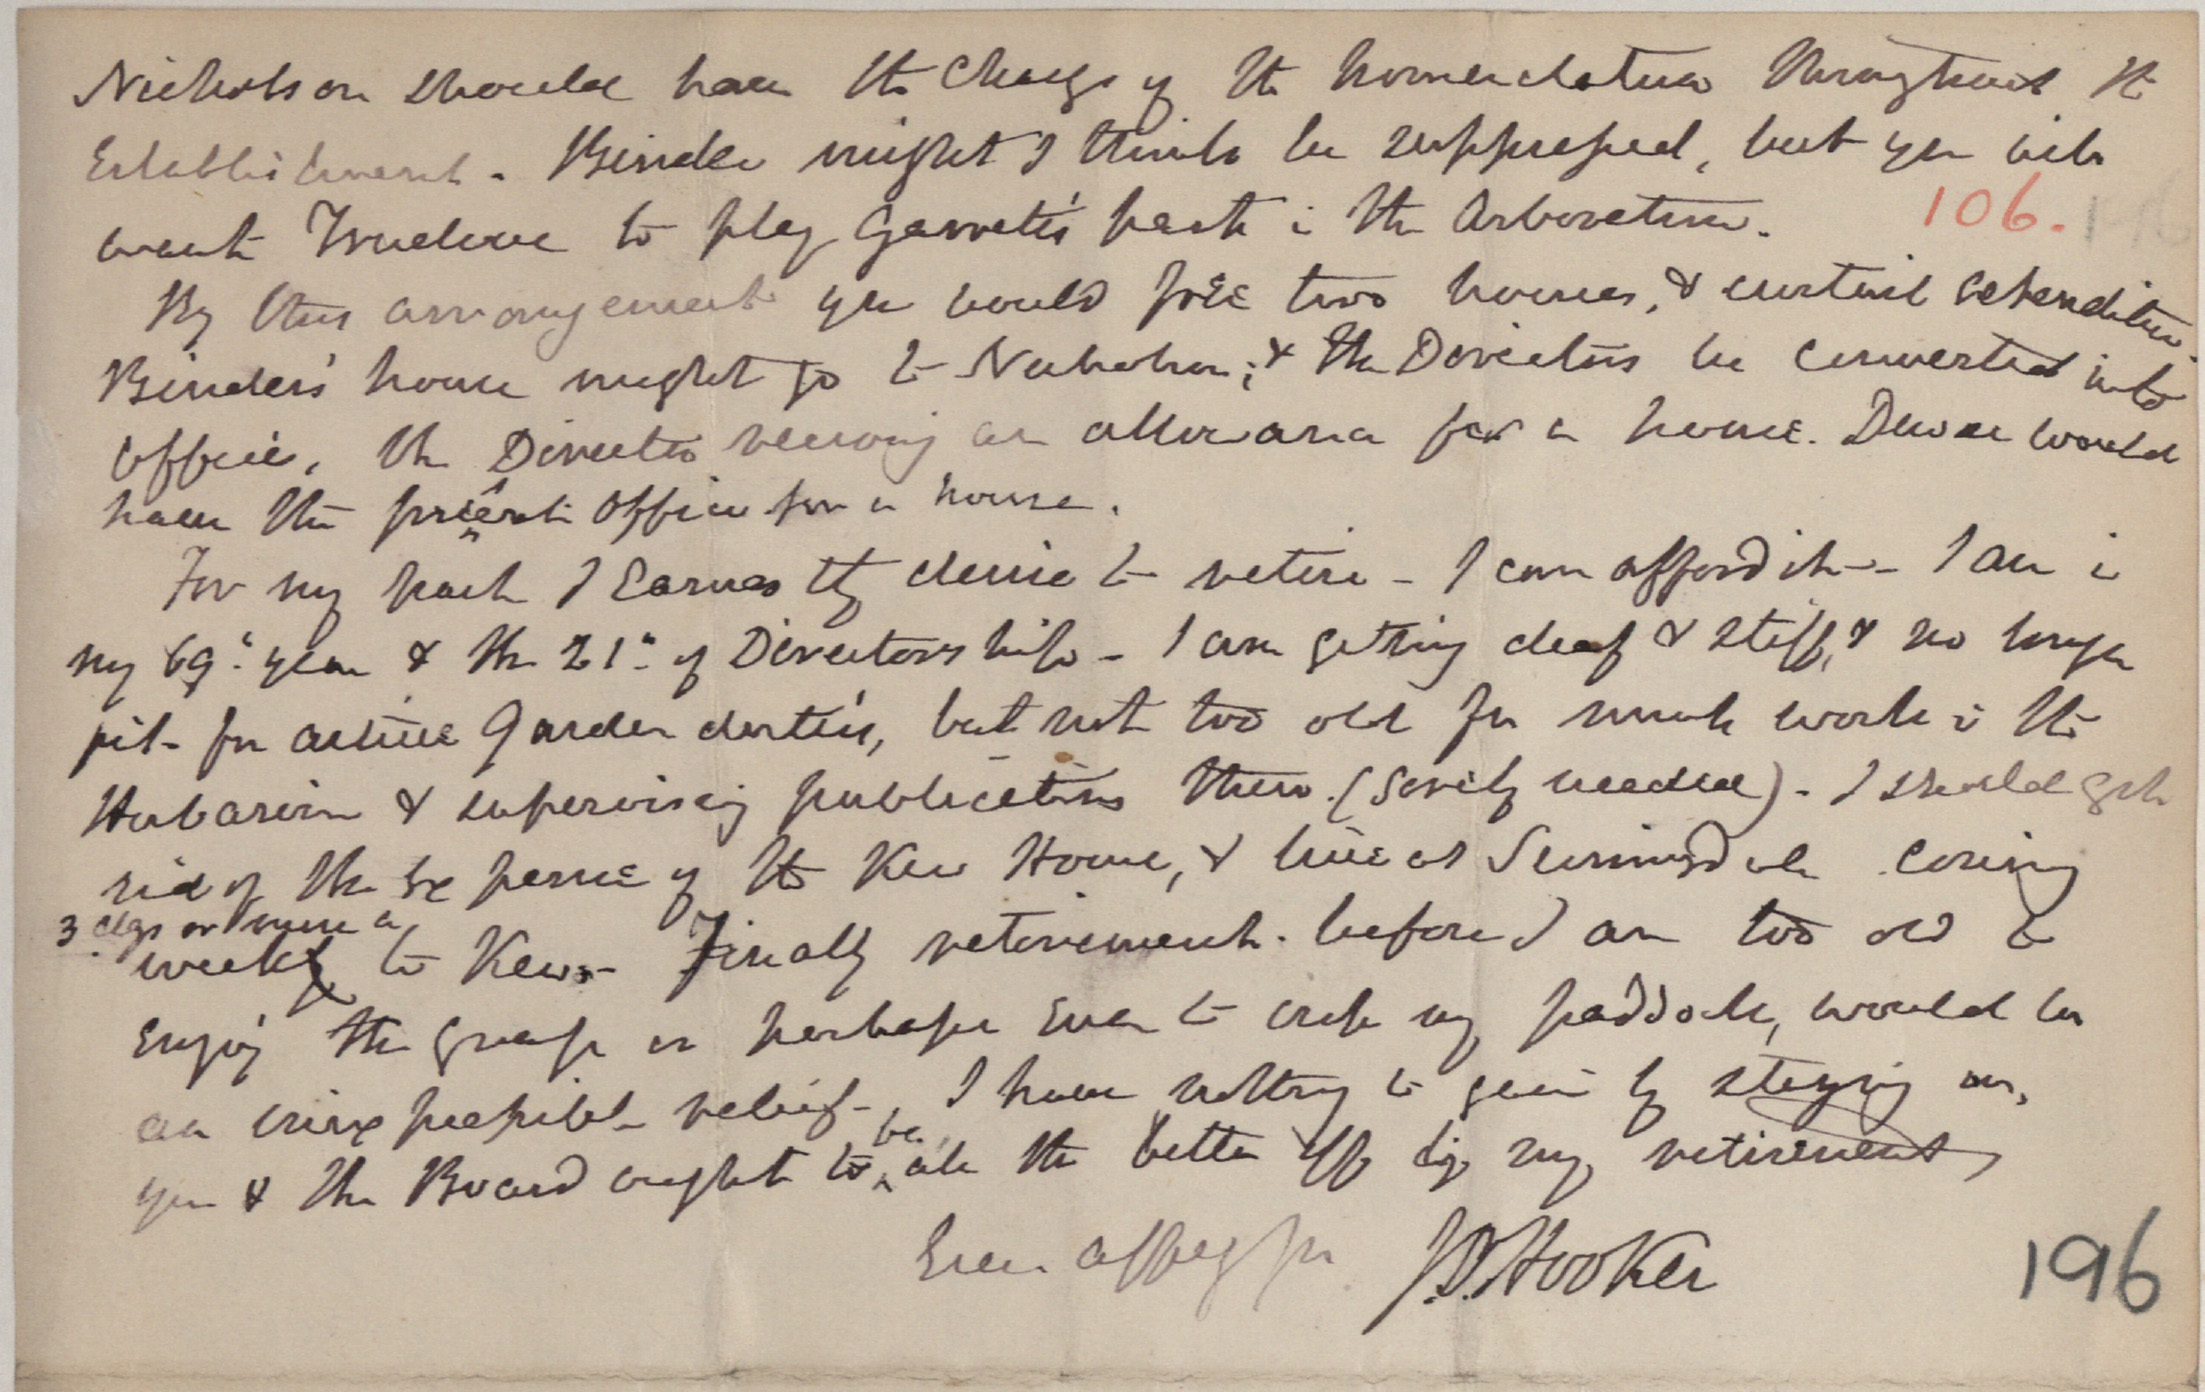 Nicholson should have the charge of the Nomenclature throughout the
Establishment. Binder might I think be suppressed, but you will
want Truelove to play Garrett's part i the Arboretum.
106.
By this arrangement you would free two houses, & curtail expenditure.
Binder's house might go to Nicholson; & the Director's be converted into
offices, the Director receiving an allowance for a house. Dewar would
have the present office for a house.
For my part I earnestly desire to retire - I can afford it - I am i
my 69th year & the 21st of Directorship - I am getting deaf & stiff, & no longer
fit for active Garden duties, but not too old for much work i the
Herbarium & supervising publications there (sorely needed). I should get
rid of the expense of the Kew House, & live at Sunningdale coming
3 days or more a
week to Kew. - Finally retirement before I am too old to
enjoy the grass or perhaps even to crop my paddock, would be
an inexpressible relief -, I have nothing to gain by staying on,
you & the Board ought to be, all the better off by my retirement,
Ever affectly yrs J.D. Hooker
196